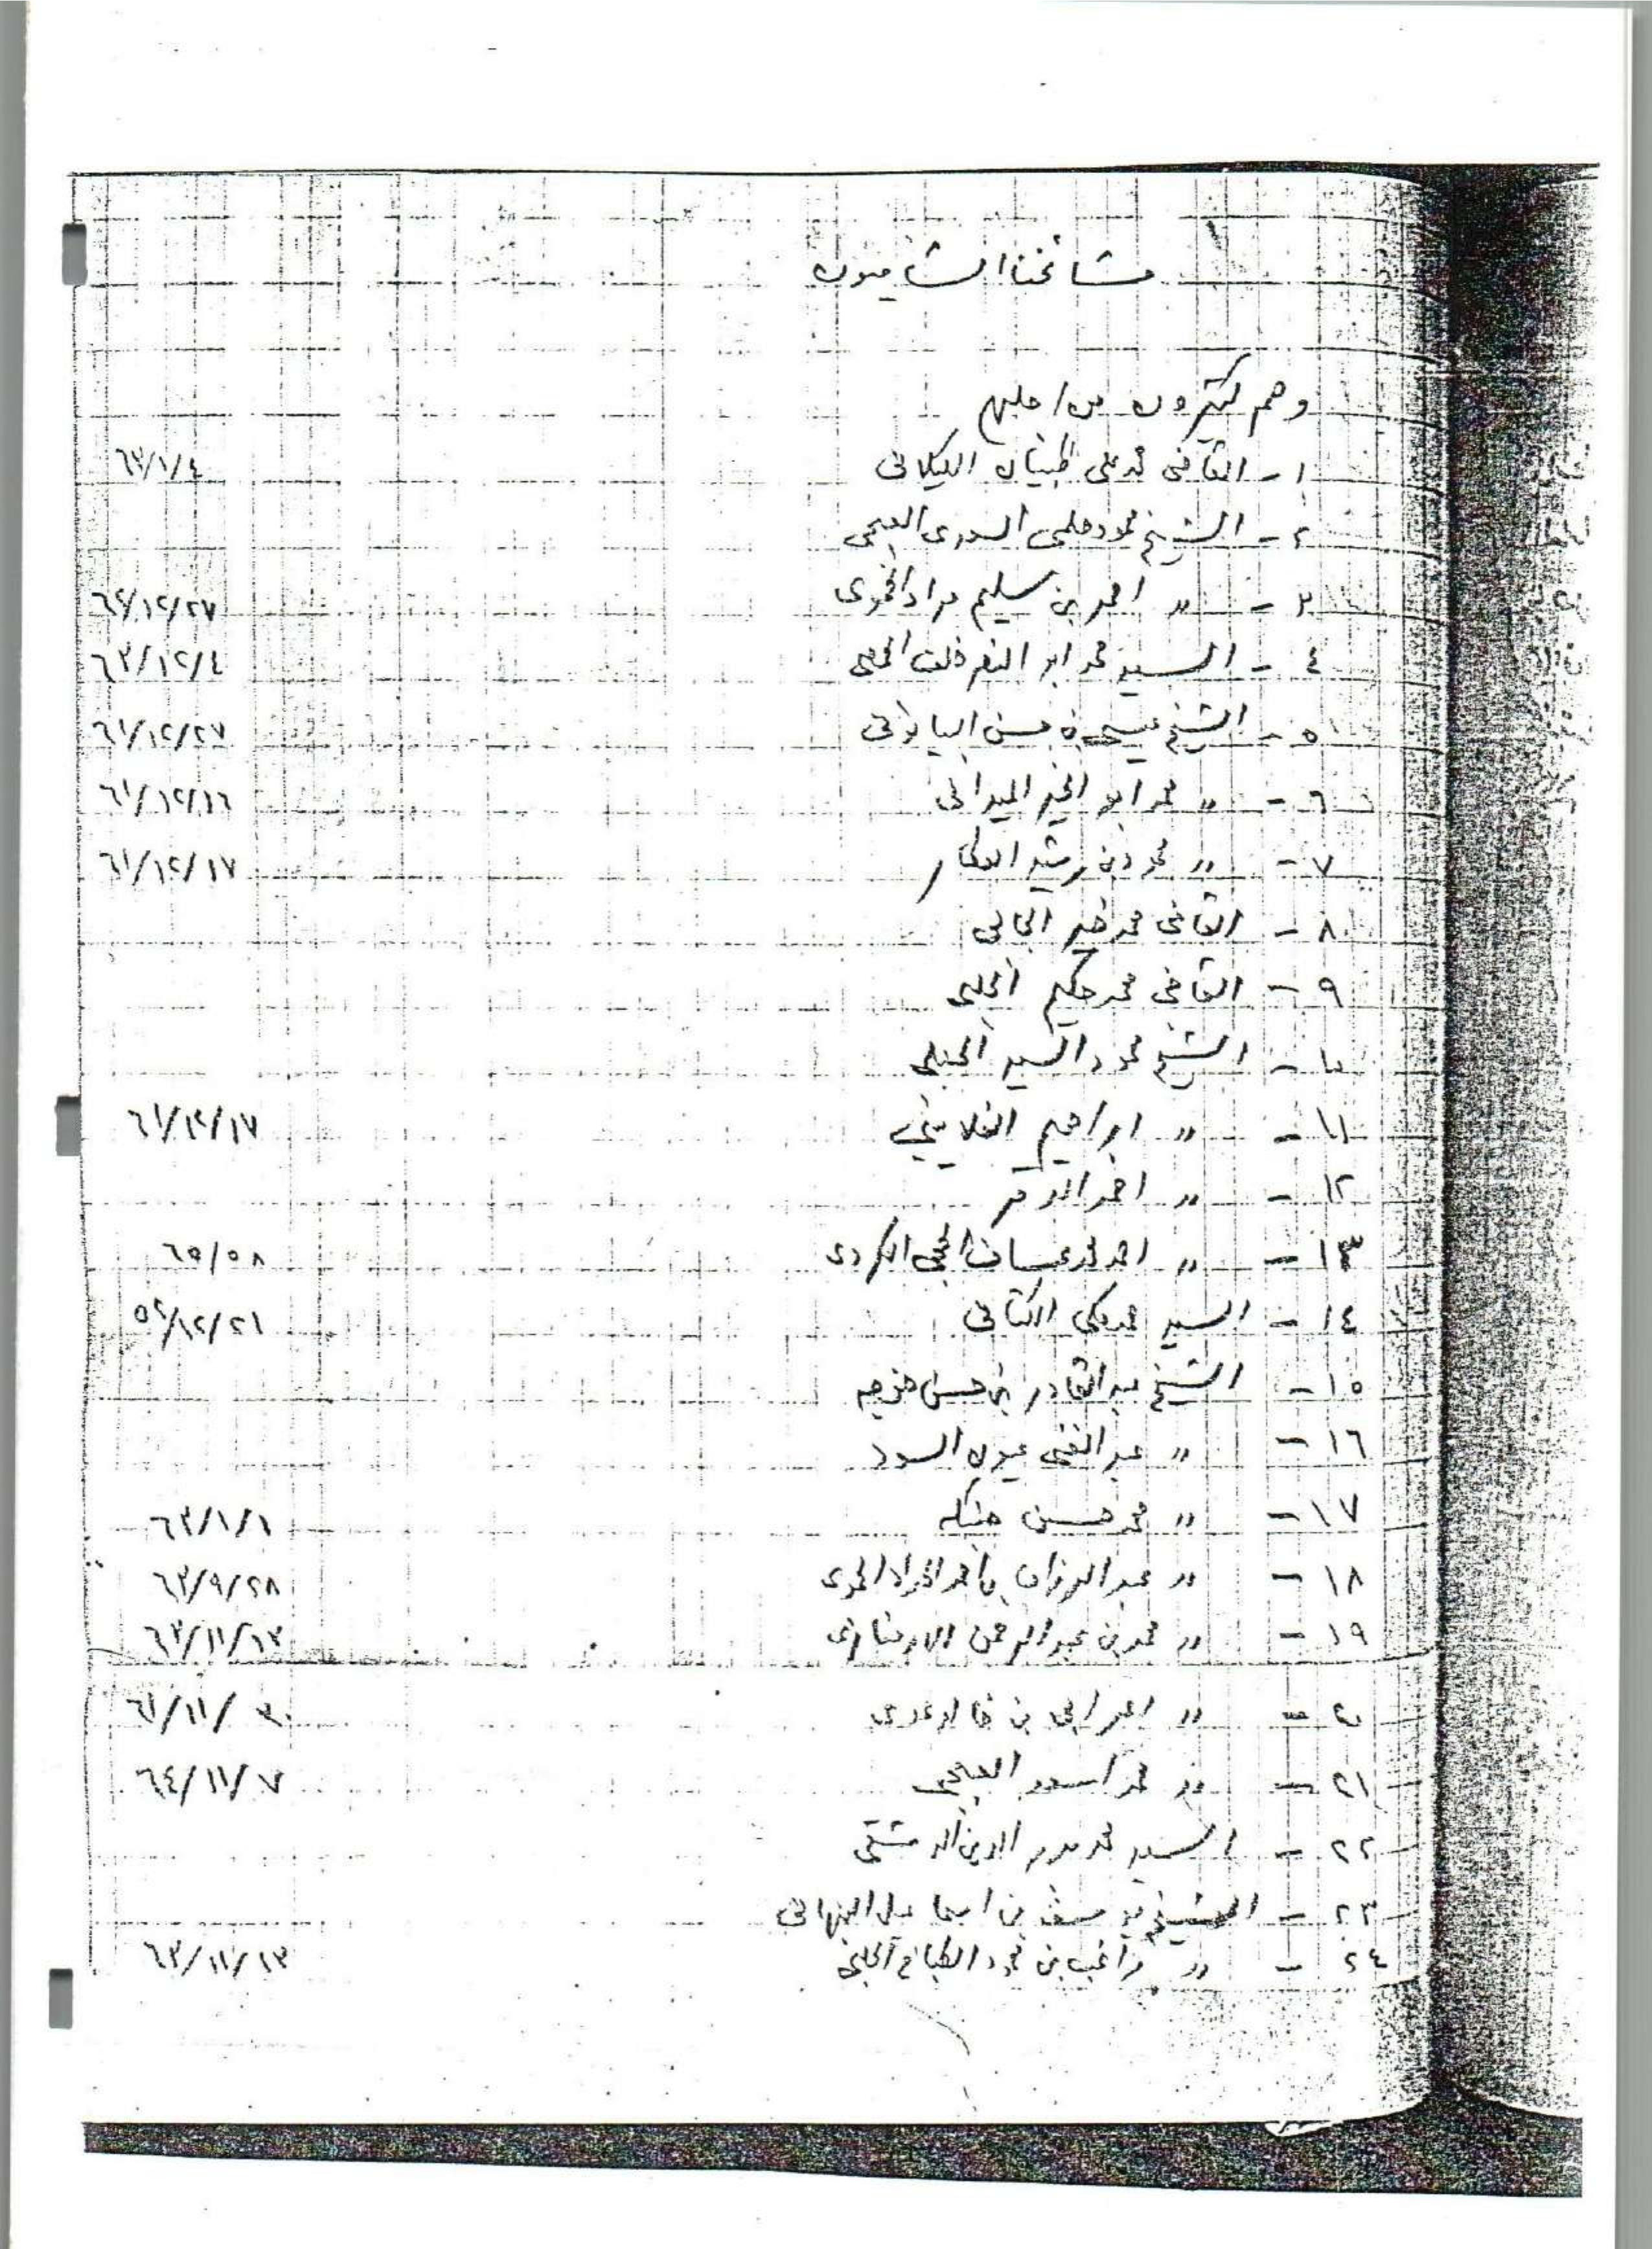 مشائخنا الشاميون
وهم كثيرون من اجلهم
١ - القاضى محمد على ظبيان الكيلانى ٦٣/١/٤
٢ - الشيخ محمود حلمى السورى العبجى
٣ - " احمد بن سليم مراد الحموى ٦٤/١٢/٢٧
٤ - السيد محمد ابو النصر خلف الحمصى ٦٣/١٢/٤
٥ - الشيخ عيسى بن حسن البيانونى ٦١/١٢/٢٧
٦ - " محمد ابو الخير الميدانى ٦١/١٢/١٦
٧ - " محمود بن رشيد العطار ٦١/١٢/١٧
٨ - القاضى محمد خير
٩ - القاضى محمد حكيم الحلبى
١٠ - الشيخ محمود السيد الحنبلى
١١ - " ابراهيم الغلايينى ٦١/١٢/١٧
١٢ - " احمد الدقر
١٣ - " احمد محمد عساف الحجى الكردى ٦٥/٥٨
١٤ - السيد محمد مكى الكتانى ٥٤/١٢/٢١
١٥ - الشيخ عبد القادر بن حسن
١٦ - " عبد الغنى عيون السود
١٧ - " محمد حسن حبنكه ٦٣/١/١
١٨ - " عبد الرزاق بن احمد المراد الحموى ٦٣/٩/٢٨
١٩ - " محمد بن عبد الرحمن الارمنازى ٦٣/١١/١٣
٢٠ - " بن خالد عدى ٦١/١١/٣٠
٢١ - " محمد اسعد العبجى ٦٤/١١/٧
٢٢ - السيد محمد بدر الدين الدمشقى
٢٣ - الشيخ يوسف بن اسماعيل النبهانى
٢٤ - " راغب بن محمود الطباخ الحلبى ٦٣/١١/١٣